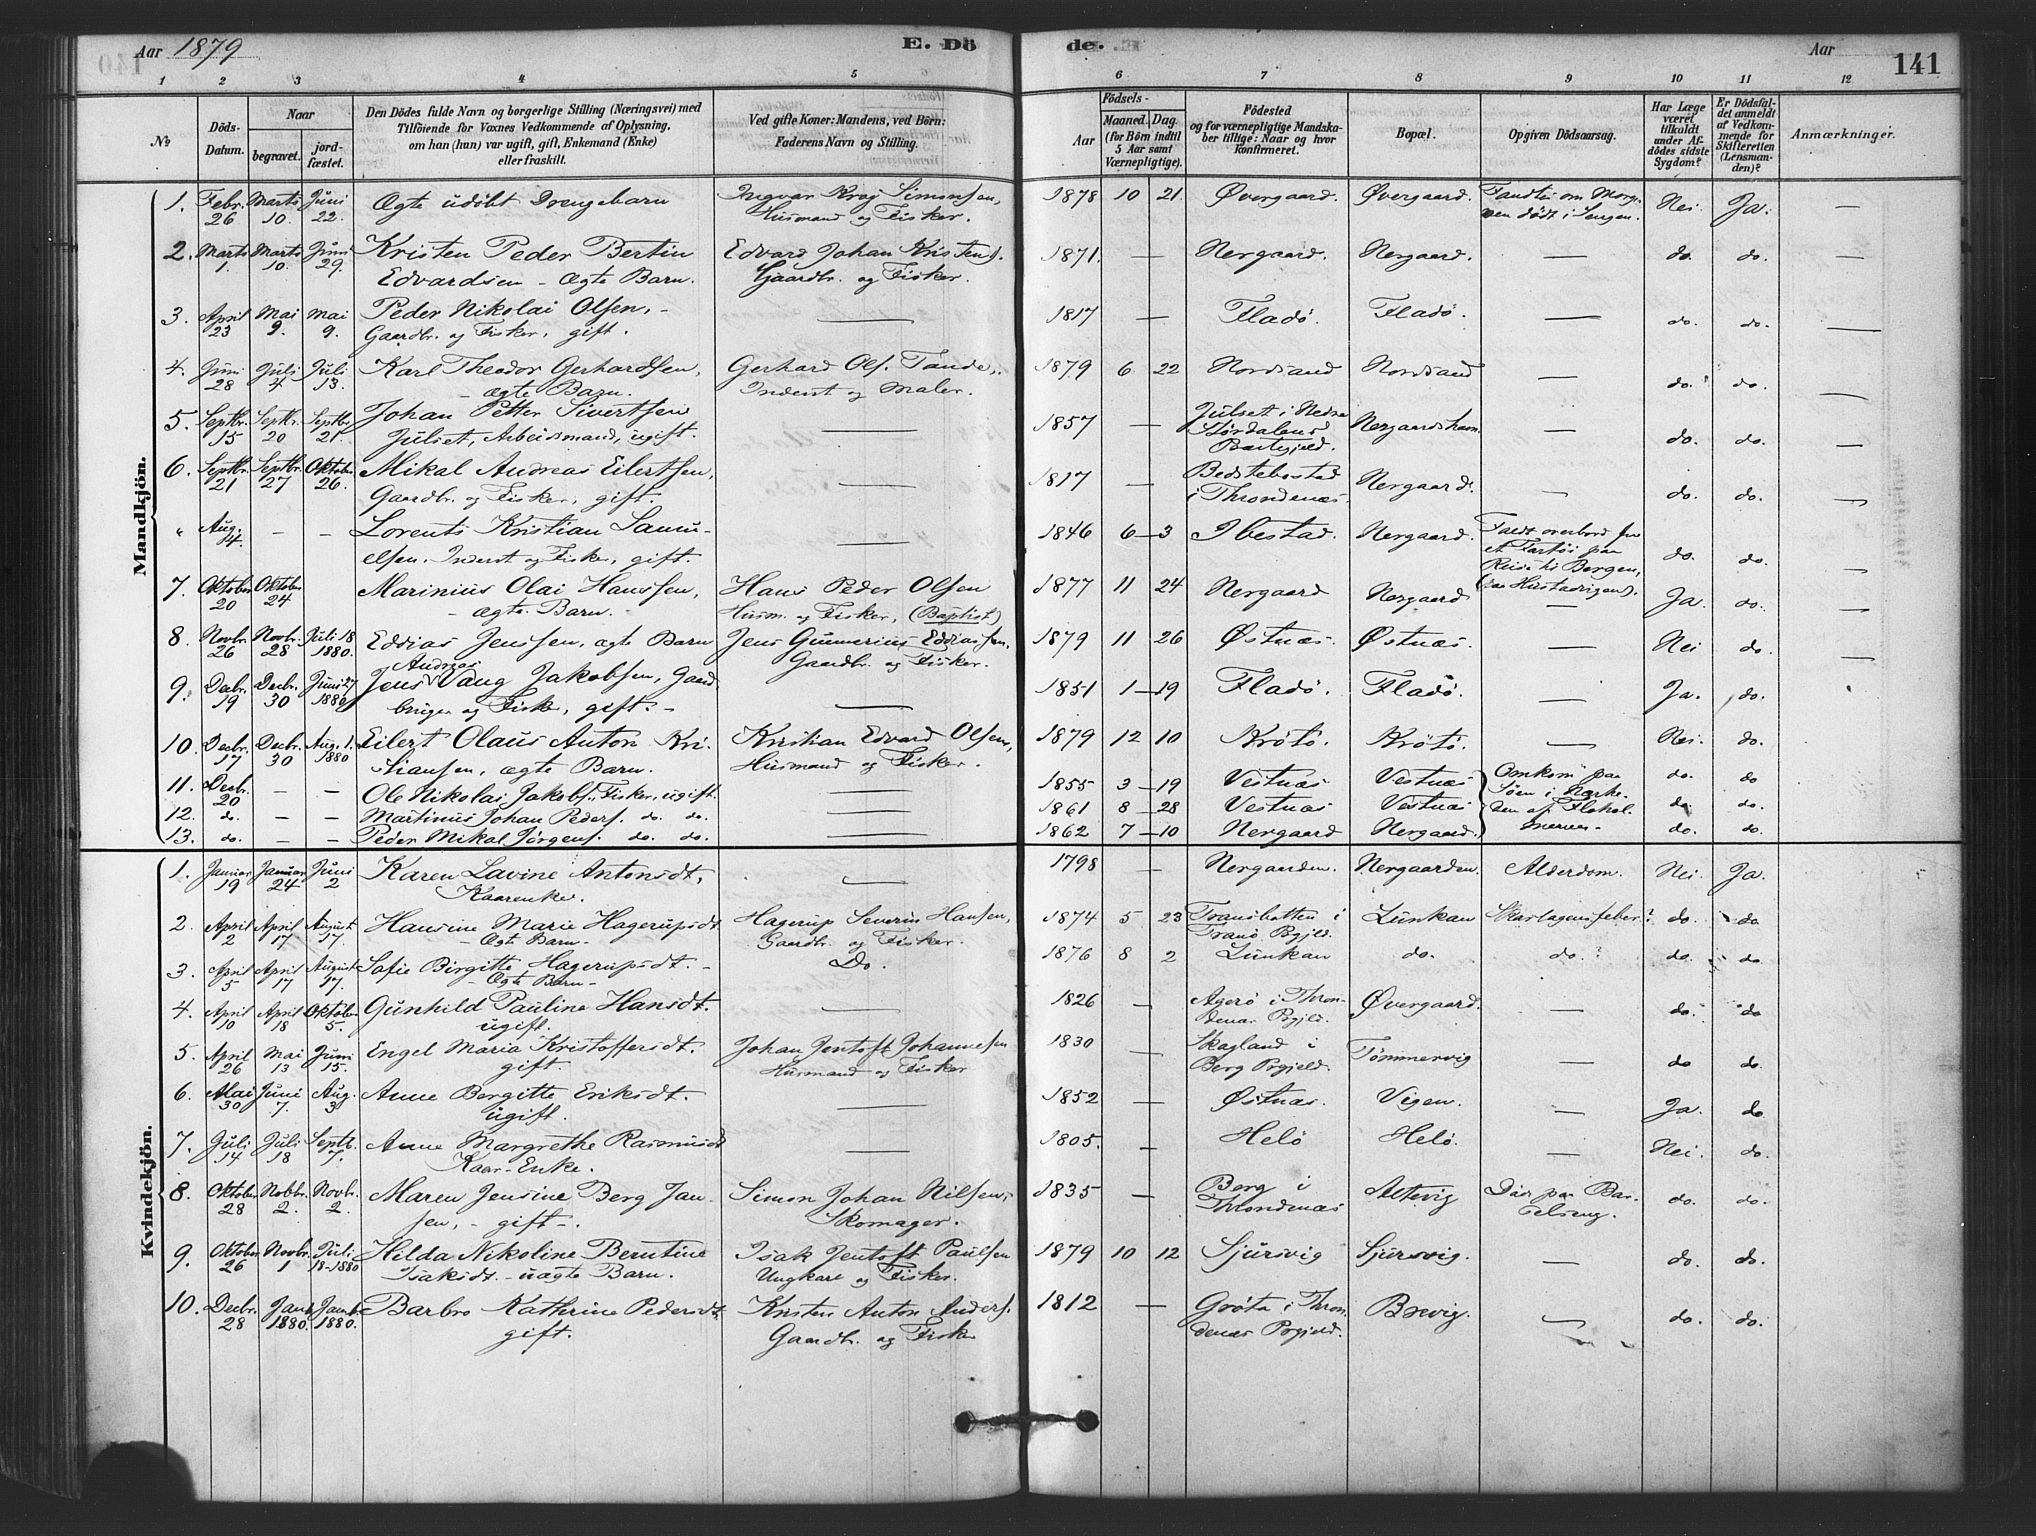 Aar 1879 E. Dö de. Aar 141
1 2 3 4 5 6 7 8 9 10 11 12
No Döds-Datum. Naar begravet. jordfæstet. Den Dödes fulde Navn og borgerlige Stilling (Næringsvei) med Tilföiende for Voxnes Vedkommende af Oplysning, om han (hun) var ugift, gift, Enkemand (Enke) eller fraskilt. Ved gifte Koner: Mandens, ved Börn: Faderens Navn og Stilling. Födsels- Aar Maaned. Dag. (for Börn indtil 5 Aar samt Værnepligtige). Födested og for værnepligtige Mandskaber tillige: Naar og hvor konfirmeret. Bopæl. Opgiven Dödsaarsag. Har Læge været tilkaldt under Afdödes sidste Sygdom? Er Dödsfaldet anmeldt af Vedkommende for Skifteretten (Lensmanden)? Anmærkninger.
Mandkjön.
1. Febr. 26 Marts 10. Juni 22. Ægte udöbt Drengebarn Ingvar Kroj Simonsen, Husmand og Fisker. 1878 10 21. Øvergaard. Øvergaard. Fandtes om Morgenen dödt i Sengen. Nei. Ja. —
2. Marts 1. Marts 10. Juni 29. Kristen Peder Bertin Edvardsen - Ægte Barn. Edvard Johan Kristens. Gaardbr. og Fisker. 1871. — Nergaard. Nergaard. — do. do. —
3. April 23 Mai 9. Mai 9. Peder Nikolai Olsen, - Gaardbr. og Fisker, gift. — 1817 — Fladö. Fladö. — do. do. —
4. Juni 28 Juli 4 Juli 13. Karl Theodor Gerhardsen, - ægte Barn. Gerhard Ols. Tande, Inderst og Maler. 1879 6 22 Nordsand Nordsand — do. do. —
5. Septbr. 15 Septbr. 20 Septbr. 21. Johan Petter Sivertsen Julset, Arbeidsmand, ugift. — 1857 — Julset i Nedre Størdalens Præstegjeld. Nergaardshavn. — do. do. —
6. Septbr. 21 Septbr. 27 Oktober 26. Mikal Andreas Eilertsen, Gaardbr. og Fisker, gift. — 1817 — Bedstebostad i Throndenæs. Nergaard. — do. do. —
" Aug. 14. — — Lorents Kristian Samuelsen. Inderst og Fisker, gift. — 1846 6 — 3 Ibestad. Nergaard. Faldt overbord fra et Fartøi paa Reise til Bergen, (paa Hustadvigen). do. do. —
7. Oktober 20 Oktober 24 Marinius Olai Hanssen, - ægte Barn. Hans Peder Olsen Husm. og Fisker, (Baptist) 1877 11 24 Nergaard Nergaard — Ja. do. —
8. Novbr. 26 Novbr. 28 Juli 18 1880. Eddias Jenssen, ægte Barn Jens Gunnerius Eddiassen, Gaardbr. og Fisker. 1879 11 26 Østnæs. Østnæs. — Nei do. —
9. Decbr. 19 Decbr. 30 Juni 27 1880 Jens Andreas Vang Jakobsen, Gaardbruger og Fisker, gift. - — 1851 1 — 19 Fladö. Fladö. — Ja. do.
10. Decbr. 17 Decbr. 30 Aug. 1. 1880 Eilert Olaus Anton Kristiansen, ægte Barn. Kristian Edvard Olsen, Husmand og Fisker. 1879 12 10 Krötö. Krötö. — Nei. do.
11. Decbr. 20 — — Ole Nikolai Jakobs., Fisker, ugift. — 1855 3 — 19 Vestnæs Vestnæs Omkom paa Søen i Nærheden af Flakolmerne. do. do
12. do. — — Martinus Johan Peders. do. do. — 1861 8 — 28 Vestnæs Vestnæs do. do.
13. do. — — Peder Mikal Jørgens. do. do. — 1862 7 — 10 Nergaard Nergaard. do. do.
Kvindekjön.
1. Januar 19 Januar 24 Juni 2 Karen Lavine Antonsdt, Kaarenke. — 1798 — Nergaarden. Nergaarden. Alderdom. Nei. Ja.
2. April 2 April 17 August 17. Hansine Marie Hagerupsdt. - Ægte Barn - Hagerup Severin Hansen, Gaardbr. og Fisker. 1874 5 23 Transbotten i Tranö Pgjld. Lunkan Skarlagensfeber? do. do
3. April 5 April 17 August 17. Sofie Birgitte Hagerupsdt. - - Ægte Barn - Do. 1876 8 2 Lunkan do. do.? do. do
4. April 10 April 18 Oktober 5. Gunhild Pauline Hansdt. ugift. — 1826 — Agerö i Throndenæs Prgjld. Øvergaard. — do. do
5. April 26 Mai 13 Juni 15. Engel Maria Kristoffersdt. gift. Johan Jentoft Johannesen Husmand og Fisker 1830 — Skagland i Berg Prgjeld. Tömmervig — do do.
6. Mai 30 Juni 7. Aug. 3 Anne Bergitte Eriksdt. ugift. — 1852 — Østnæs. Vigen. — Ja. do
7. Juli 14 Juli 18 Septbr. 7. Anne Margrethe Rasmusdt Kaar-Enke. — 1805. — Helö Helö. — Nei. do.
8. Oktober 28 Novbr. 2. Novbr. 2. Maren Jensine Berg Jansen, - gift -. Simon Johan Nilsen, Skomager. 1835 — Berg i Throndenæs Altevig Död paa Barselseng. do. do.
9. Oktober 26 Novbr. 1 Juli 18-1880 Hilda Nikoline Berntine Isaksdt. - uægte Barn. Isak Jentoft Paulsen Ungkarl og Fisker. 1879 10 12 Sjursvig Sjursvig. — do. do.
10. Decbr. 28 Janr. 1880. Janr. 1880. Barbro Katherine Pedersdt. gift. Kristen Anton Anders. Gaardbr. og Fisker 1812 — Gröta i Throndenæs Prgjeld. Brevig. — do. do.